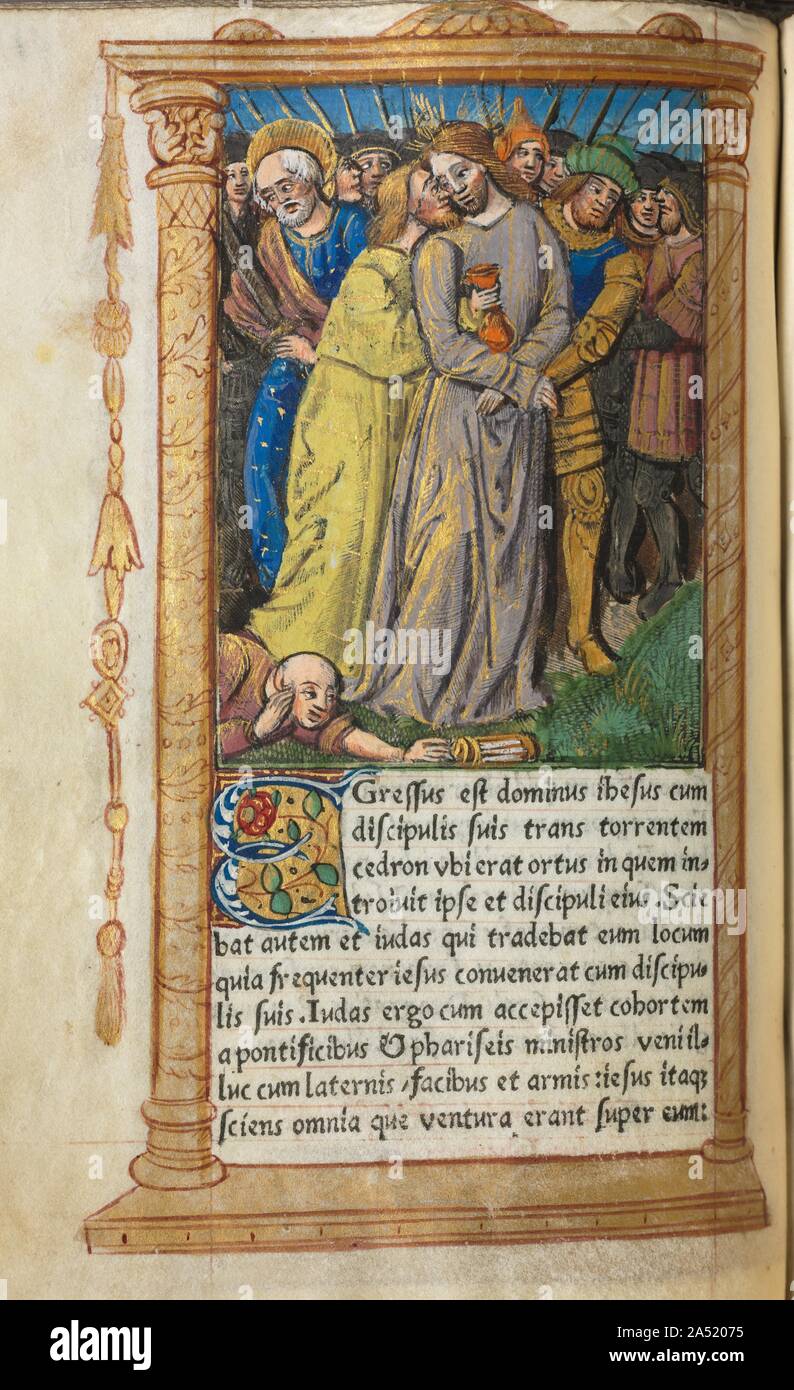 EGressus est dominus ihesus cum
discipulis suis trans torrentem
cedron vbi erat ortus in quem in-
troiuit ipse et discipuli eius. Scie
bat autem et iudas qui tradebat eum locum
quia frequenter iesus conuenerat cum discipu-
lis suis. Iudas ergo cum accepisset cohortem
a pontificibus & phariseis ministros venit il-
luc cum laternis, facibus et armis: iesus itaqꝫ
sciens omnia que ventura erant super eum:
alamy
Image ID: 2A52075
www.alamy.com